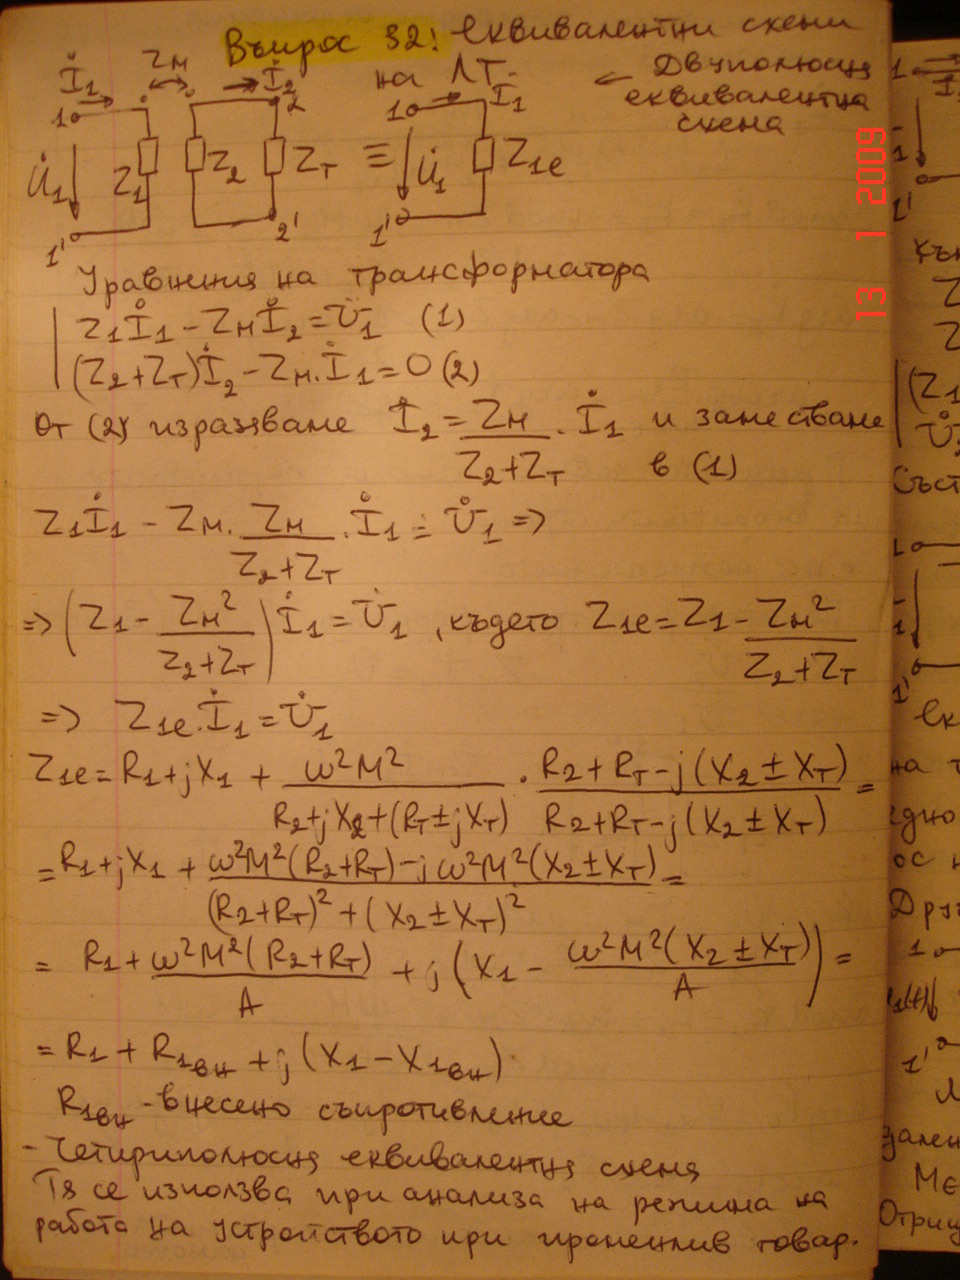 Въпрос 32: Еквивалентни схеми
на ЛТ.
← Двуполюсна
еквивалентна
схема
İ₁ Zм İ₂ 1 2 U̇₁ Z₁ Z₂ Zт 1' 2' ≡ 1 İ₁ U̇₁ Z₁е 1'
13 1 2009
Уравнения на трансформатора
Z₁İ₁ - ZмİI₂ = U̇₁ (1)
(Z₂+Zт)İ₂ - Zм.İ₁ = 0 (2)
От (2) изразяваме İ₂ = Zм/(Z₂+Zт) . İ₁ и заместваме
в (1)
Z₁İ₁ - Zм. Zм/(Z₂+Zт) . İ₁ = U̇₁ =>
=> (Z₁ - Zм²/(Z₂+Zт)) İ₁ = U̇₁ , където Z₁е = Z₁ - Zм²/(Z₂+Zт)
=> Z₁е.İ₁ = U̇₁
Z₁е = R₁+jX₁ + ω²M²/(R₂+jX₂+(Rт±jXт)) . (R₂+Rт-j(X₂±Xт))/(R₂+Rт-j(X₂±Xт)) =
= R₁+jX₁ + (ω²M²(R₂+Rт)-jω²M²(X₂±Xт))/((R₂+Rт)²+(X₂±Xт)²) =
= R₁ + ω²M²(R₂+Rт)/A + j(X₁ - ω²M²(X₂±Xт)/A) =
= R₁ + R₁вн + j(X₁ - X₁вн)
R₁вн - внесено съпротивление
- Четириполюсна еквивалентна схема
Тя се използва при анализа на режима на
работа на устройството при променлив товар.